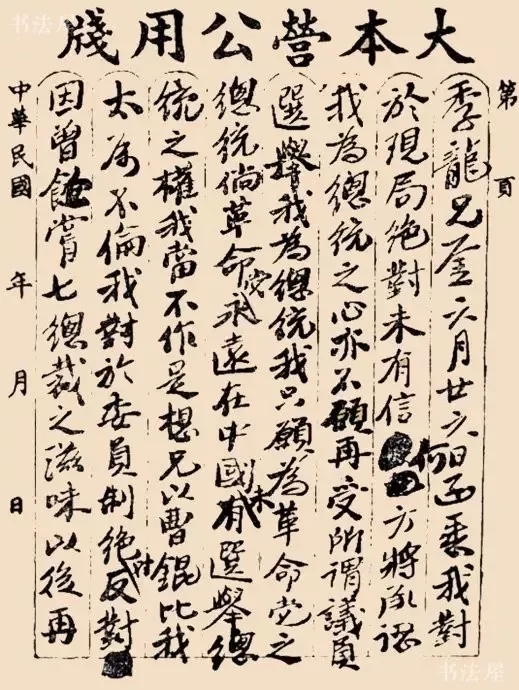 大本營公用牋
第 頁
季龍兄鑒六月廿六日函悉我對
於現局絕對未有信何方將承認
我為總統之心亦不願再受所謂議員
選舉我為總統我只願為革命党之
總統倘革命党永遠在中國未有選舉總
統之權我當不作是想兄以曹錕比我
太為不倫我對於委員制絕對反對
因曾飽嘗七總裁之滋味以後再
中華民國 年 月 日
书法屋
书法屋